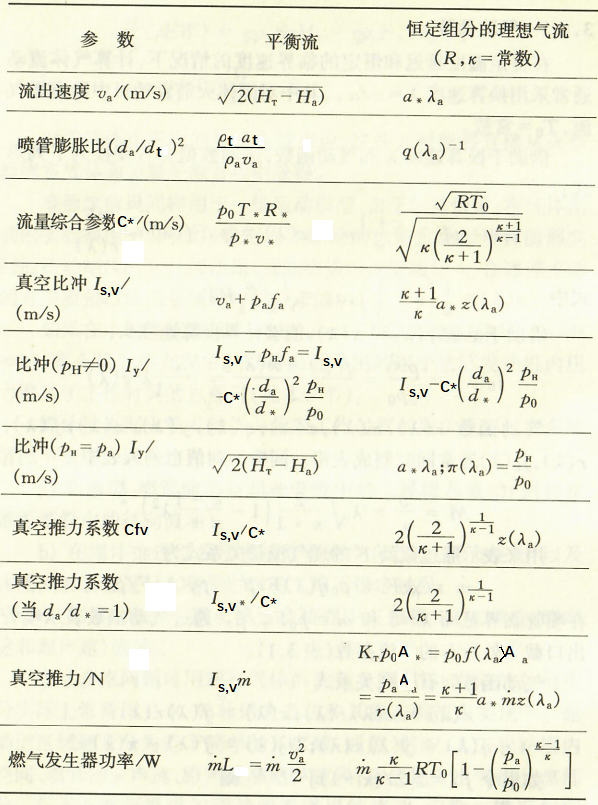 参 数 平衡流 恒定组分的理想气流
(R,κ=常数)
流出速度 va/(m/s) √2(HT−Ha) a*λa
喷管膨胀比(da/dt)² ρt at / ρava q(λa)⁻¹
流量综合参数C*/(m/s) p0T*R* / p*v* √RT0 / √κ(2/κ+1)^(κ+1/κ−1)
真空比冲 Is,v/
(m/s) va+pafa κ+1/κ a*z(λa)
比冲(pH≠0) Iy/
(m/s) Is,v−pHfa=Is,v−
C*(da/d*)² pH/p0 Is,v−C*(da/d*)² pH/p0
比冲(pH=pa) Iy/
(m/s) √2(HT−Ha) a*λa;π(λa)=pH/p0
真空推力系数Cfv Is,v/C* 2(2/κ+1)^(1/κ−1) z(λa)
真空推力系数
(当 da/d*=1) Is,v*/C* 2(2/κ+1)^(1/κ−1)
真空推力/N Is,vṁ KTp0A*=p0f(λa)Aa
=paAa/r(λa)=κ+1/κ a*ṁz(λa)
燃气发生器功率/W ṁL=ṁ va²/2 ṁ κ/κ−1 RT0[1−(pa/p0)^(κ−1/κ)]